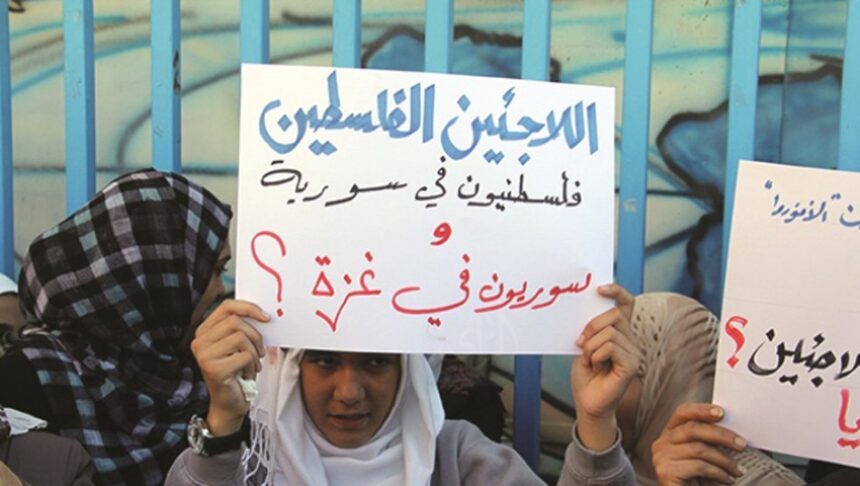 اللاجئين الفلسطين
فلسطنيون في سورية
و
سوريون في غزة ؟
ن "الأنوروا"
لاجئين ؟
يا